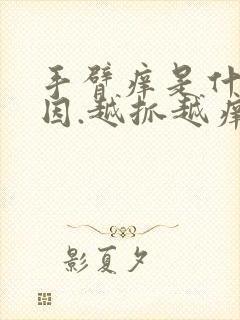 手臂痒是什
因.越抓越痒
影夏夕